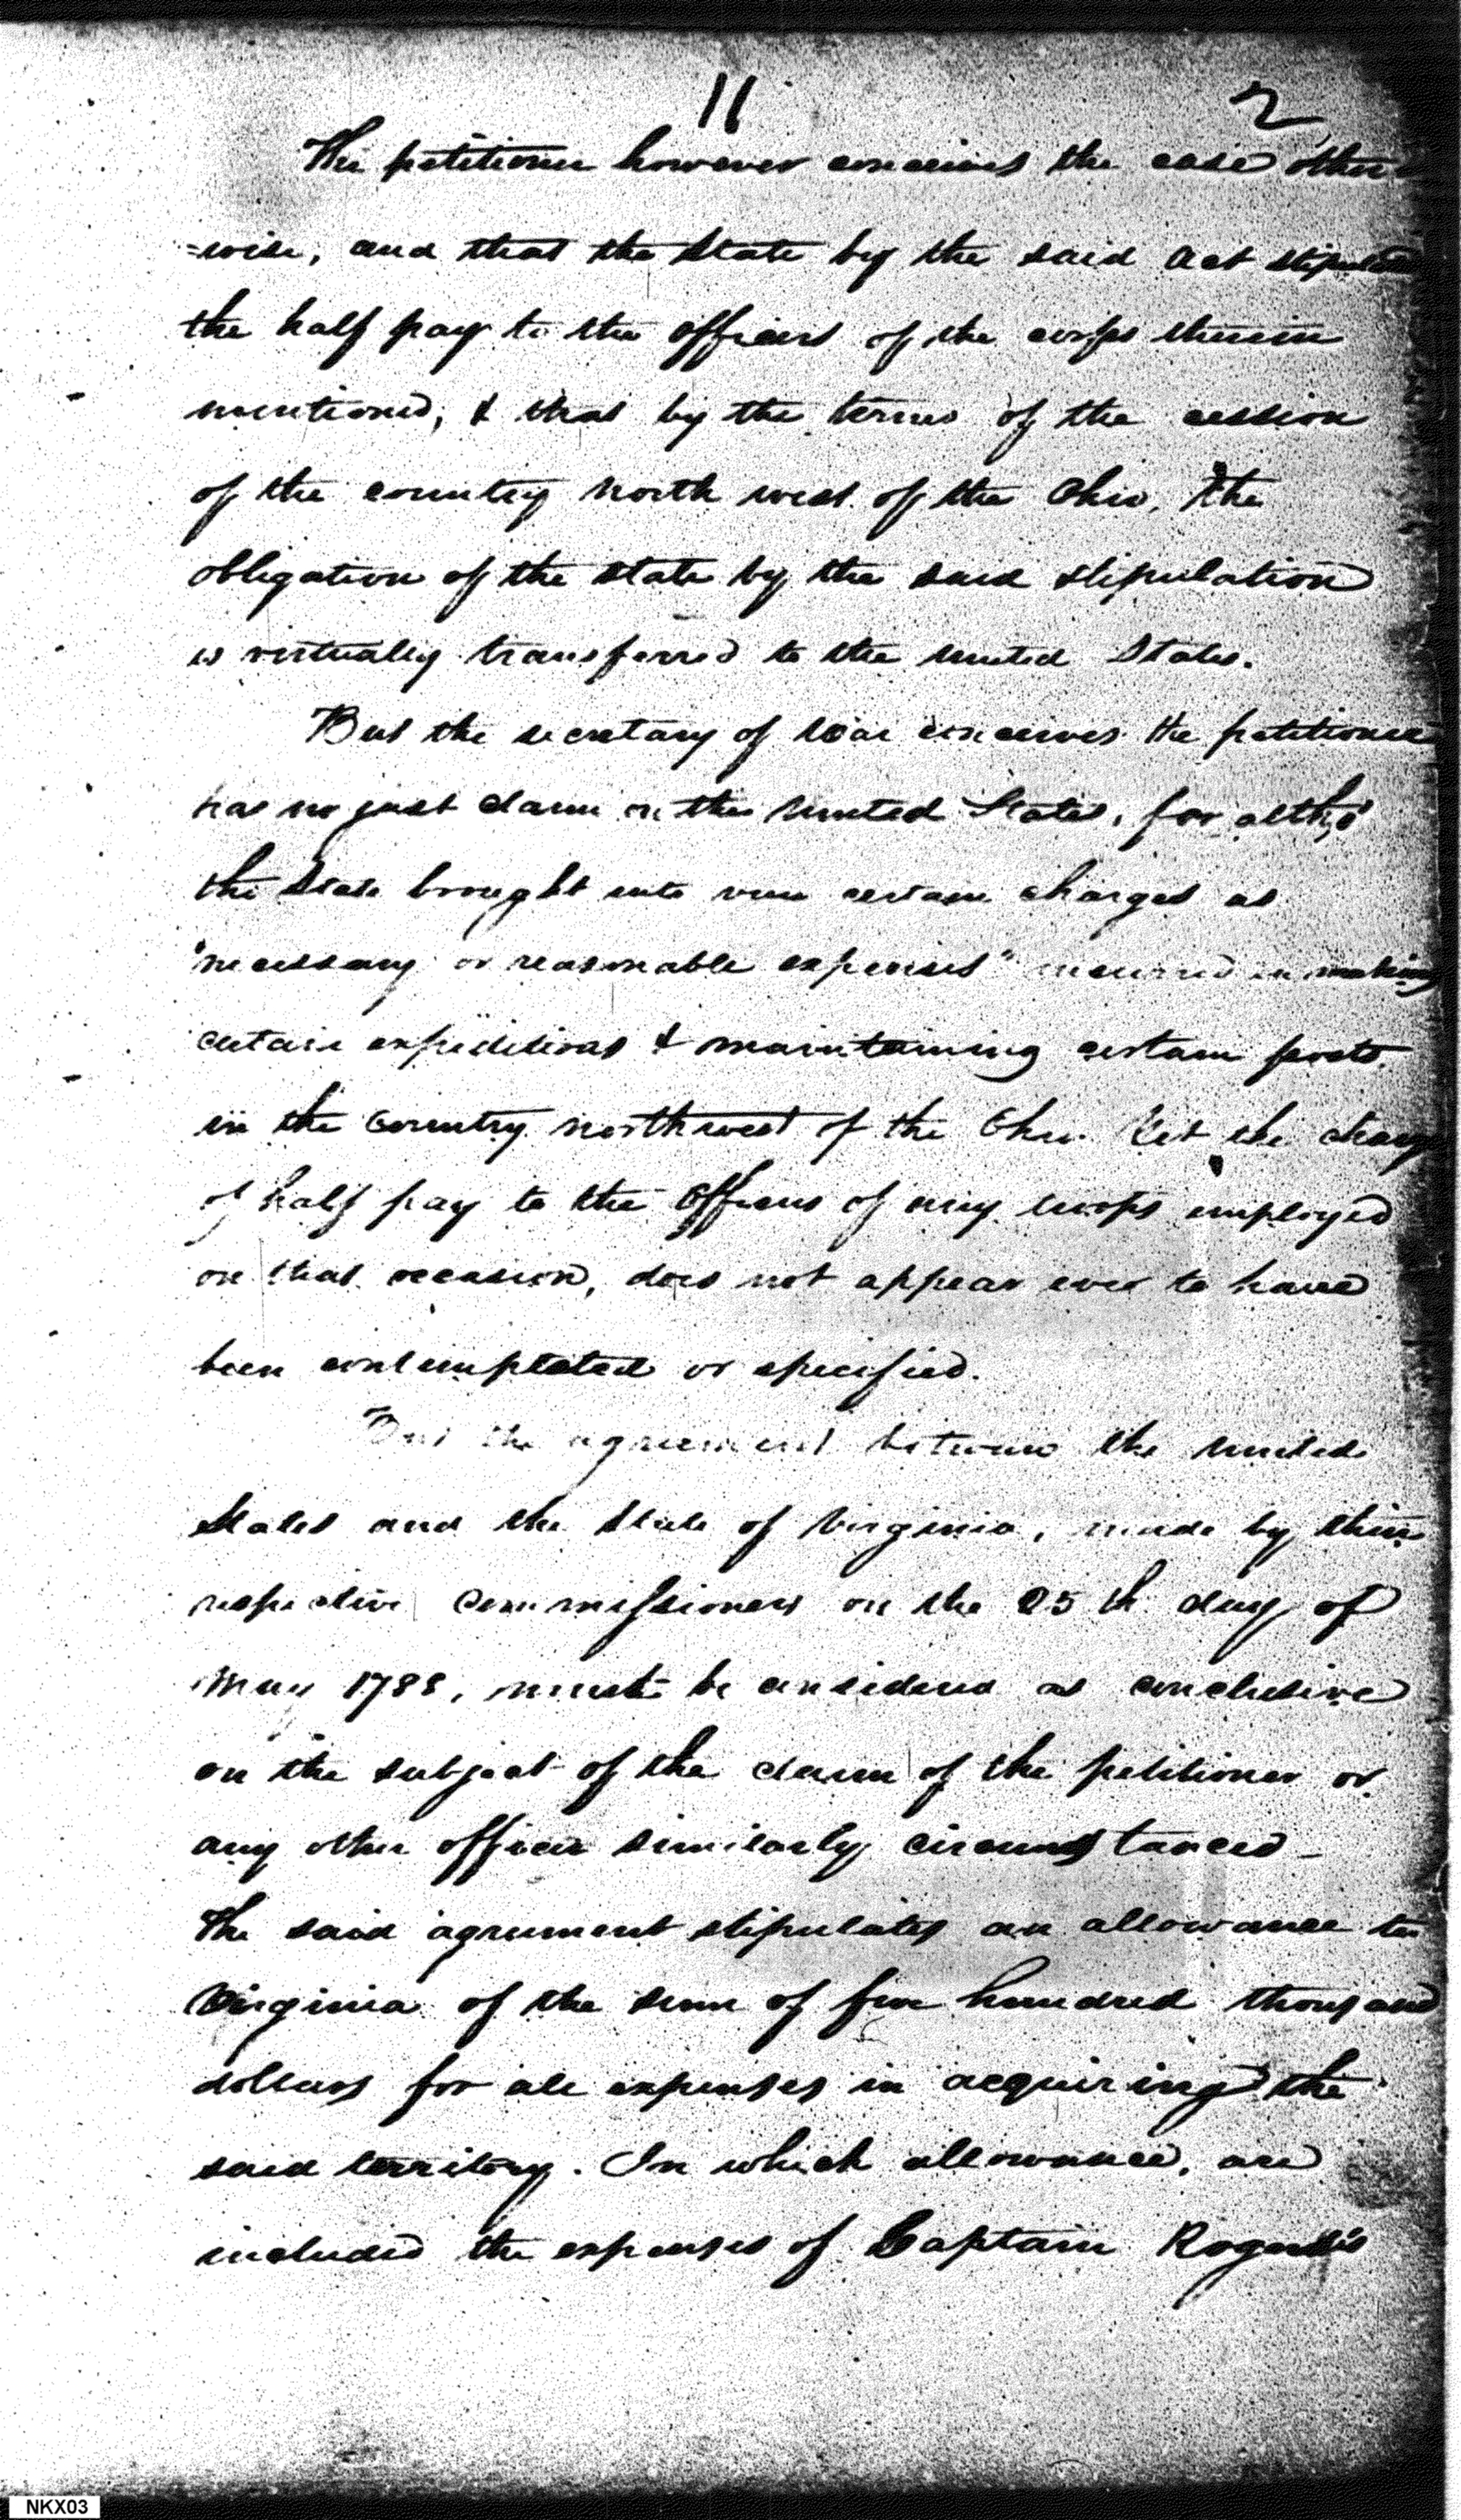 11 2
The petitioner however conceives the case other
=wise, and that the State by the said Act
the half pay to the officers of the corps therein
mentioned, & that by the terms of the cession
of the country north west of the Ohio, the
obligation of the state by the said stipulation
is virtually transferred to the United States.
But the secretary of War conceives the petitioner
has no just claim on the United States, for altho'
the State brought into view certain charges as
"necessary or reasonable expenses" incurred in making
certain expeditions & maintaining certain posts
in the Country northwest of the Ohio. Yet the charge
of half pay to the Officers of any corps employed
on that occasion, does not appear ever to have
been contemplated or specified.
But the agreement between the United
States and the State of Virginia, made by their
respective Commissioners on the 25th day of
May 1788, must be considered as conclusive
on the subject of the claim of the petitioner or
any other officer similarly circumstanced -
The said agreement stipulates an allowance to
Virginia of the sum of five hundred thousand
dollars for all expenses in acquiring the
said territory. In which allowance, are
included the expenses of Captain Rogers's
NKX03